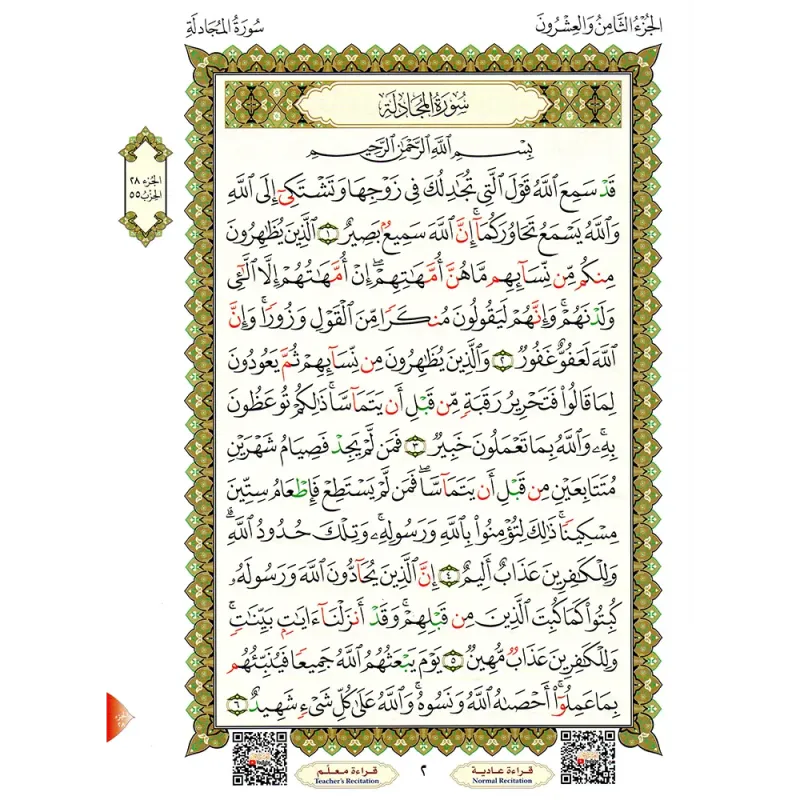 سُورَةُ المُجَادلَةِ
الجُزْءُ الثَّامِنُ وَالعِشْرُونَ
سُورَةُ المُجَادلَةِ
بِسْمِ ٱللَّهِ ٱلرَّحْمَٰنِ ٱلرَّحِيمِ
الجزء ٢٨
الحزب ٥٥
قَدْ سَمِعَ ٱللَّهُ قَوْلَ ٱلَّتِي تُجَٰدِلُكَ فِي زَوْجِهَا وَتَشْتَكِيٓ إِلَى ٱللَّهِ
وَٱللَّهُ يَسْمَعُ تَحَاوُرَكُمَآۚ إِنَّ ٱللَّهَ سَمِيعٌۢ بَصِيرٌ ١ ٱلَّذِينَ يُظَٰهِرُونَ
مِنكُم مِّن نِّسَآئِهِم مَّا هُنَّ أُمَّهَٰتِهِمْۖ إِنْ أُمَّهَٰتُهُمْ إِلَّا ٱلَّٰٓـِٔي
وَلَدْنَهُمْۚ وَإِنَّهُمْ لَيَقُولُونَ مُنكَرًا مِّنَ ٱلْقَوْلِ وَزُورًاۚ وَإِنَّ
ٱللَّهَ لَعَفُوٌّ غَفُورٌ ٢ وَٱلَّذِينَ يُظَٰهِرُونَ مِن نِّسَآئِهِمْ ثُمَّ يَعُودُونَ
لِمَا قَالُوا۟ فَتَحْرِيرُ رَقَبَةٍ مِّن قَبْلِ أَن يَتَمَآسَّاۚ ذَٰلِكُمْ تُوعَظُونَ
بِهِۦۚ وَٱللَّهُ بِمَا تَعْمَلُونَ خَبِيرٌ ٣ فَمَن لَّمْ يَجِدْ فَصِيَامُ شَهْرَيْنِ
مُتَتَابِعَيْنِ مِن قَبْلِ أَن يَتَمَآسَّاۖ فَمَن لَّمْ يَسْتَطِعْ فَإِطْعَامُ سِتِّينَ
مِسْكِينًاۚ ذَٰلِكَ لِتُؤْمِنُوا۟ بِٱللَّهِ وَرَسُولِهِۦۚ وَتِلْكَ حُدُودُ ٱللَّهِۗ
وَلِلْكَٰفِرِينَ عَذَابٌ أَلِيمٌ ٤ إِنَّ ٱلَّذِينَ يُحَآدُّونَ ٱللَّهَ وَرَسُولَهُۥ
كُبِتُوا۟ كَمَا كُبِتَ ٱلَّذِينَ مِن قَبْلِهِمْۚ وَقَدْ أَنزَلْنَآ ءَايَٰتٍۭ بَيِّنَٰتٍۚ
وَلِلْكَٰفِرِينَ عَذَابٌ مُّهِينٌ ٥ يَوْمَ يَبْعَثُهُمُ ٱللَّهُ جَمِيعًا فَيُنَبِّئُهُم
بِمَا عَمِلُوٓا۟ۚ أَحْصَىٰهُ ٱللَّهُ وَنَسُوهُۚ وَٱللَّهُ عَلَىٰ كُلِّ شَيْءٍ شَهِيدٌ ٦
قراءة معلّم
Teacher's Recitation
٢
قراءة عادية
Normal Recitation